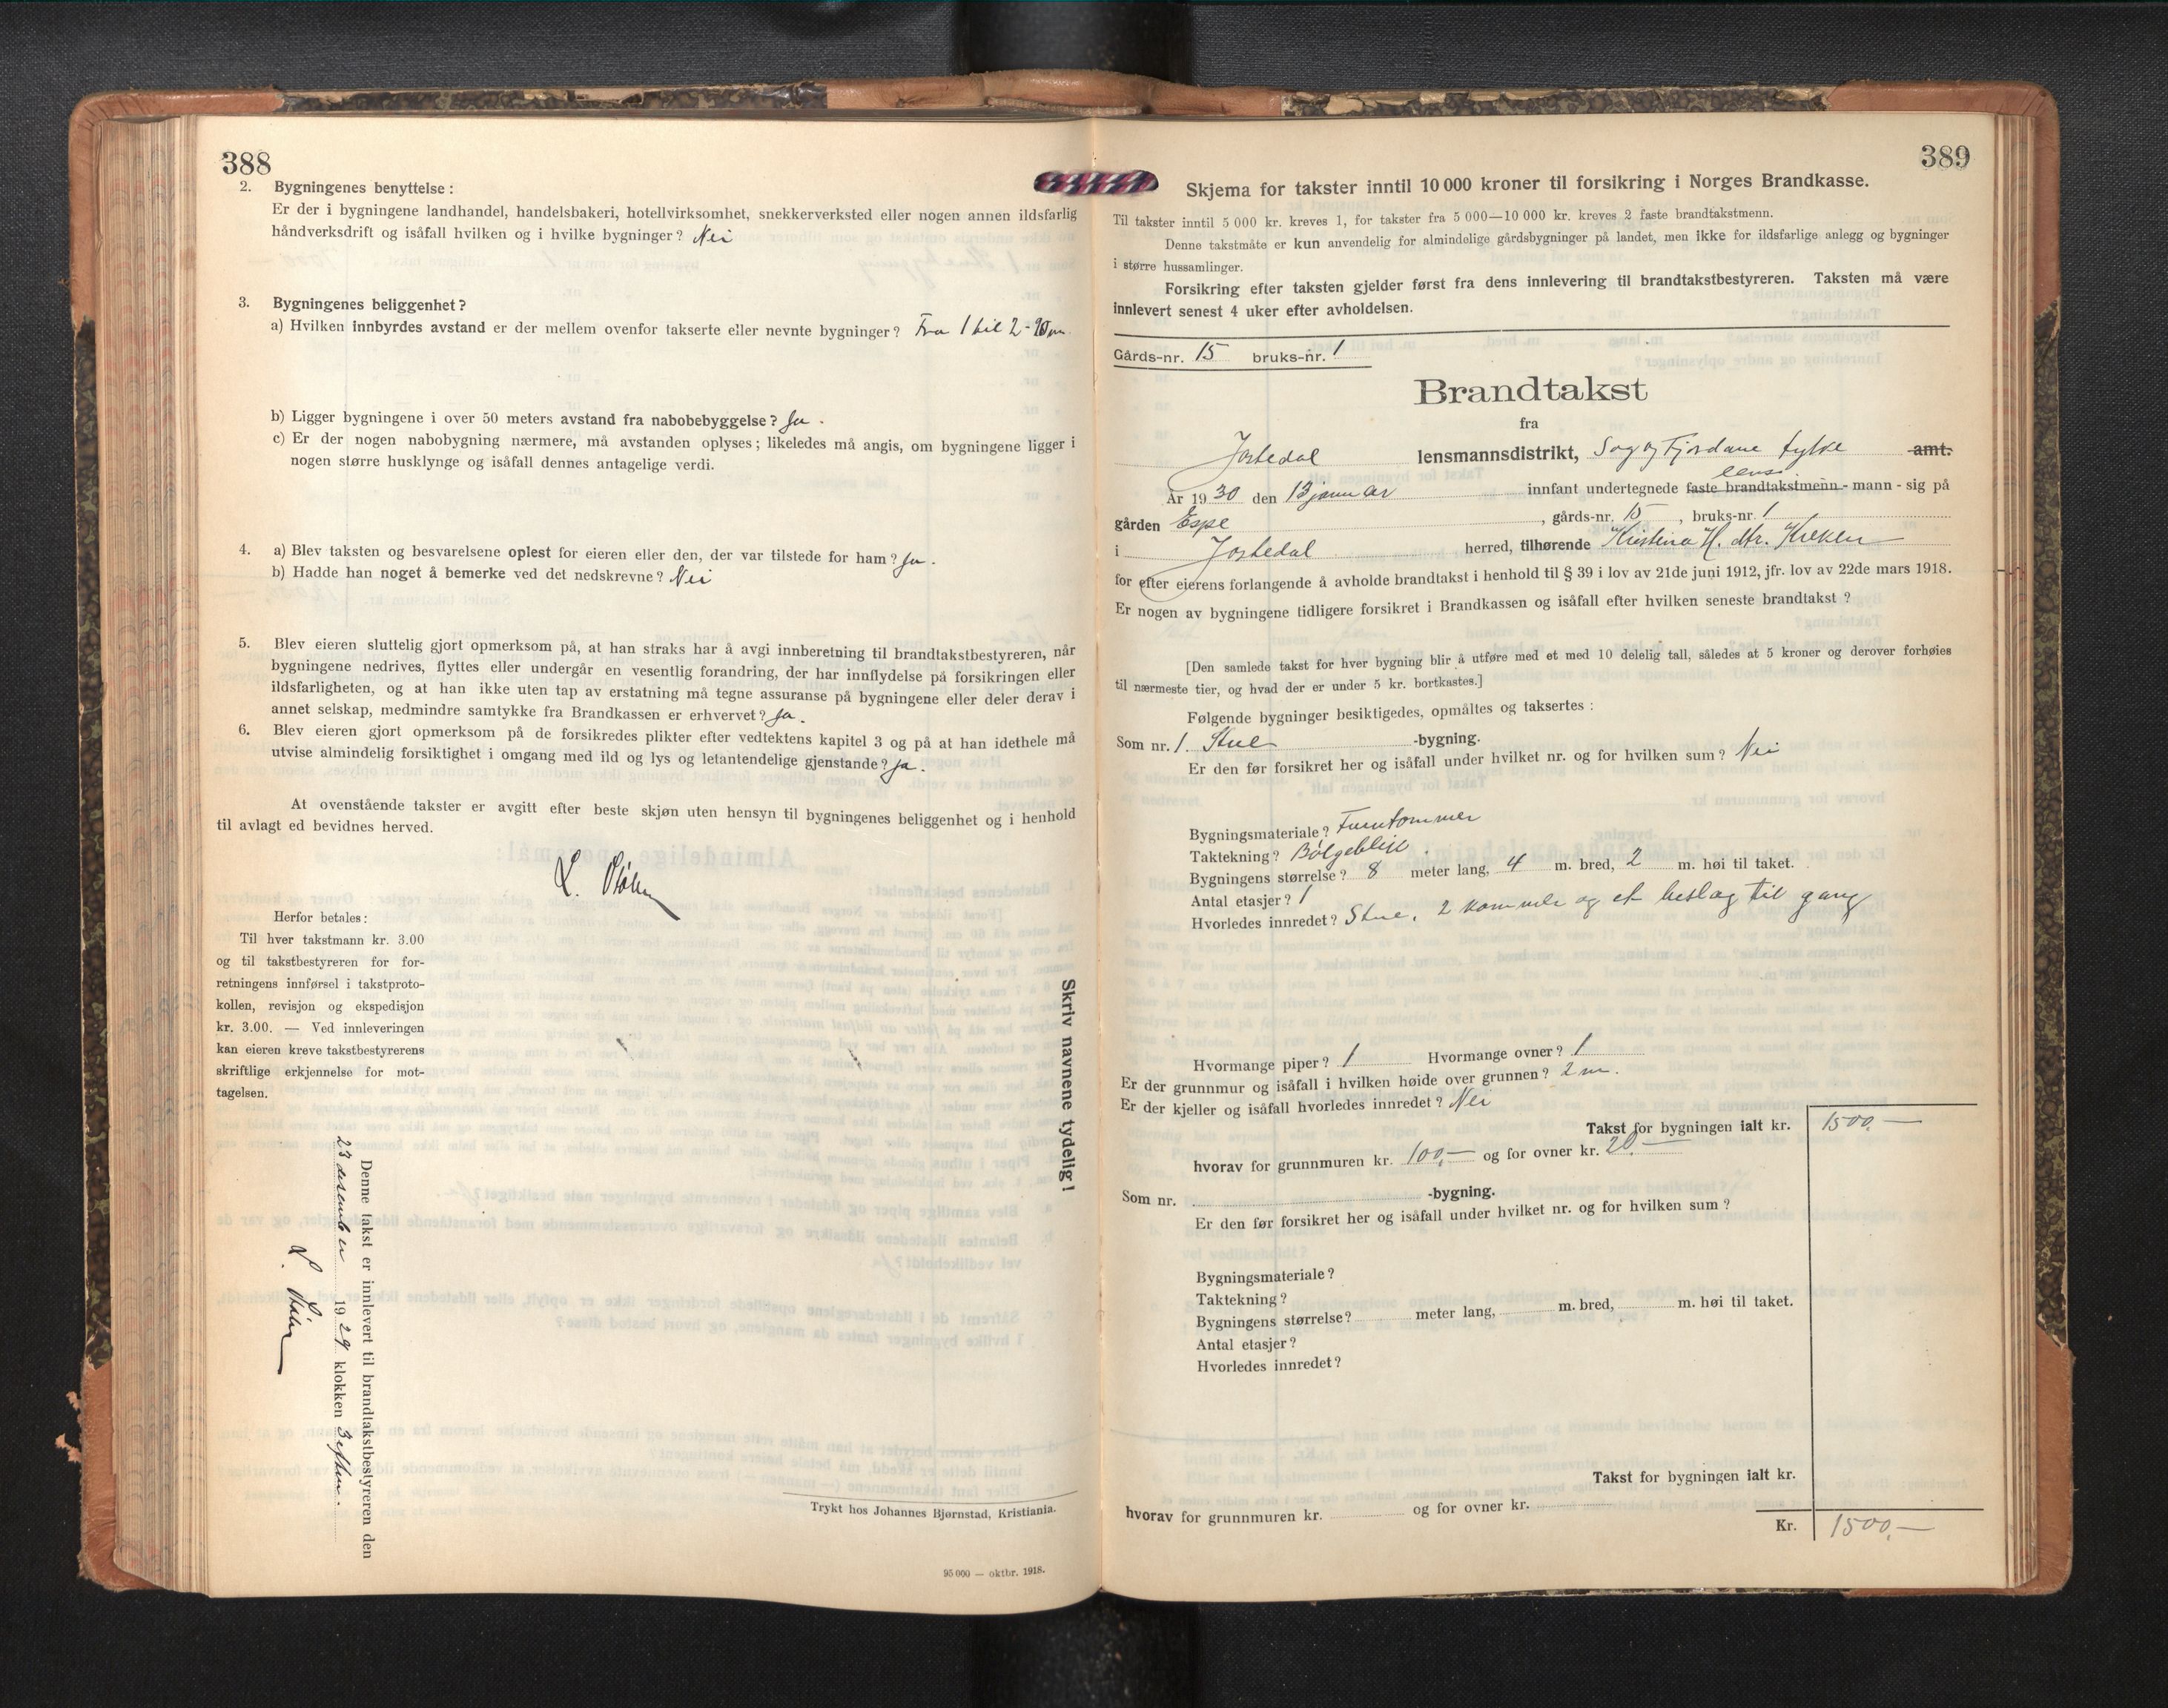 388
2. Bygningenes benyttelse :
Er der i bygningene landhandel, handelsbakeri, hotellvirksomhet, snekkerverksted eller nogen annen ildsfarlig
håndverksdrift og isåfall hvilken og i hvilke bygninger? Nei
3. Bygningenes beliggenhet?
a) Hvilken innbyrdes avstand er der mellem ovenfor takserte eller nevnte bygninger? Fra 1 til 2 - 20 m.
b) Ligger bygningene i over 50 meters avstand fra nabobebyggelse? Ja.
c) Er der nogen nabobygning nærmere, må avstanden oplyses; likeledes må angis, om bygningene ligger i
nogen større husklynge og isåfall dennes antagelige verdi.
4. a) Blev taksten og besvarelsene oplest for eieren eller den, der var tilstede for ham? Ja.
b) Hadde han noget å bemerke ved det nedskrevne? Nei
5. Blev eieren sluttelig gjort opmerksom på, at han straks har å avgi innberetning til brandtakstbestyreren, når
bygningene nedrives, flyttes eller undergår en vesentlig forandring, der har innflydelse på forsikringen eller
ildsfarligheten, og at han ikke uten tap av erstatning må tegne assuranse på bygningene eller deler derav i
annet selskap, medmindre samtykke fra Brandkassen er erhvervet? Ja.
6. Blev eieren gjort opmerksom på de forsikredes plikter efter vedtektens kapitel 3 og på at han idethele må
utvise almindelig forsiktighet i omgang med ild og lys og letantendelige gjenstande? Ja.
At ovenstående takster er avgitt efter beste skjøn uten hensyn til bygningenes beliggenhet og i henhold
til avlagt ed bevidnes herved.
Herfor betales:
Til hver takstmann kr. 3.00
og til takstbestyreren for for-
retningens innførsel i takstproto-
kollen, revisjon og ekspedisjon
kr. 3.00. — Ved innleveringen
kan eieren kreve takstbestyrerens
skriftlige erkjennelse for mot-
tagelsen.
Skriv navnene tydelig!
Denne takst er innlevert til brandtakstbestyreren den
23 desember 1929 klokken 3 eftm.
Trykt hos Johannes Bjørnstad, Kristiania.
95 000 — oktbr. 1918.
389
Skjema for takster inntil 10 000 kroner til forsikring i Norges Brandkasse.
Til takster inntil 5 000 kr. kreves 1, for takster fra 5 000—10 000 kr. kreves 2 faste brandtakstmenn.
Denne takstmåte er kun anvendelig for almindelige gårdsbygninger på landet, men ikke for ildsfarlige anlegg og bygninger
i større hussamlinger.
Forsikring efter taksten gjelder først fra dens innlevering til brandtakstbestyreren. Taksten må være
innlevert senest 4 uker efter avholdelsen.
Gårds-nr. 15 bruks-nr. 1
Brandtakst
fra
Jostedal lensmannsdistrikt, Sogn og Fjordane fylke amt.
lens
År 1930 den 13 januar innfant undertegnede faste brandtakstmenn - mann - sig på
gården Espe, gårds-nr. 15, bruks-nr. 1
i Jostedal herred, tilhørende Kristina H. dtr. Kreken
for efter eierens forlangende å avholde brandtakst i henhold til § 39 i lov av 21de juni 1912, jfr. lov av 22de mars 1918.
Er nogen av bygningene tidligere forsikret i Brandkassen og isåfall efter hvilken seneste brandtakst ?
[Den samlede takst for hver bygning blir å utføre med et med 10 delelig tall, således at 5 kroner og derover forhøies
til nærmeste tier, og hvad der er under 5 kr. bortkastes.]
Følgende bygninger besiktigedes, opmåltes og taksertes :
Som nr. 1. Stue -bygning.
Er den før forsikret her og isåfall under hvilket nr. og for hvilken sum ? Nei
Bygningsmateriale? Furutømmer
Taktekning? Bølgeblikk.
Bygningens størrelse? 8 meter lang, 4 m. bred, 2 m. høi til taket.
Antal etasjer? 1
Hvorledes innredet? Stue, 2 kammer og et beslag til gang
Hvormange piper? 1 Hvormange ovner? 1
Er der grunnmur og isåfall i hvilken høide over grunnen? 2 m.
Er der kjeller og isåfall hvorledes innredet? Nei
Takst for bygningen ialt kr. 1500,—
hvorav for grunnmuren kr. 100,— og for ovner kr. 20.—
Som nr. -bygning.
Er den før forsikret her og isåfall under hvilket nr. og for hvilken sum ?
Bygningsmateriale?
Taktekning?
Bygningens størrelse? meter lang, m. bred, m. høi til taket.
Antal etasjer?
Hvorledes innredet?
Takst for bygningen ialt kr.
hvorav for grunnmuren kr. og for ovner kr.
Kr. 1500,—